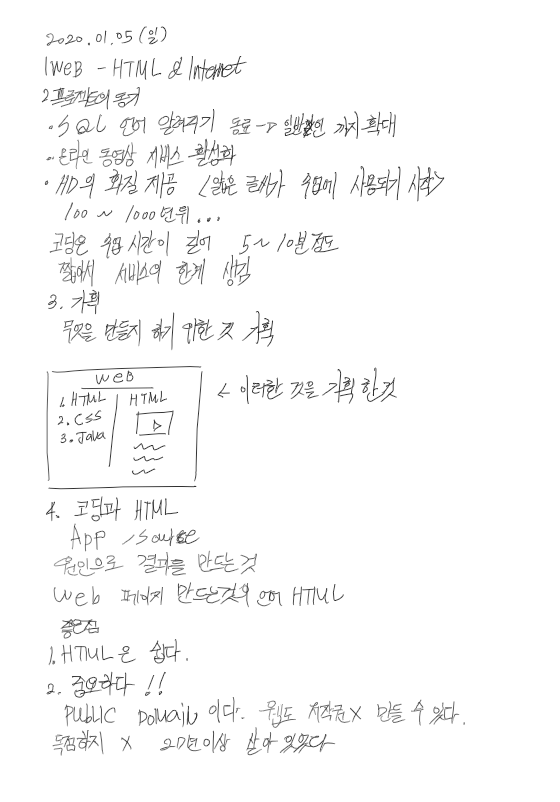 2020.01.05(일)
1WEB - HTML & Internet
2.프로젝트의 동기
· SQL 언어 알려주기 동료 -> 일반인 까지 확대
· 온라인 동영상 서비스 활성화
· HD의 화질 제공 <얇은 글씨가 수업에 사용되기 시작>
100 ~ 1000년위...
코딩은 수업 시간이 길어 5~10분 정도
짧아서 서비스의 한계 생김
3. 기획
무엇을 만들지 하기 위한 것 기획
WEB
1. HTML
2. CSS
3. Java
HTML
← 이러한 것을 기획 한것
4. 코딩과 HTML
App /source
원인으로 결과를 만드는 것
Web 페이지 만드는것의 언어 HTML
좋은점
1. HTML은 쉽다.
2. 중요하다 !!
PUBLIC DOMAIN 이다. 웹도 저작권X 만들 수 있다.
독점하지 X 20년이상 살아 있었다